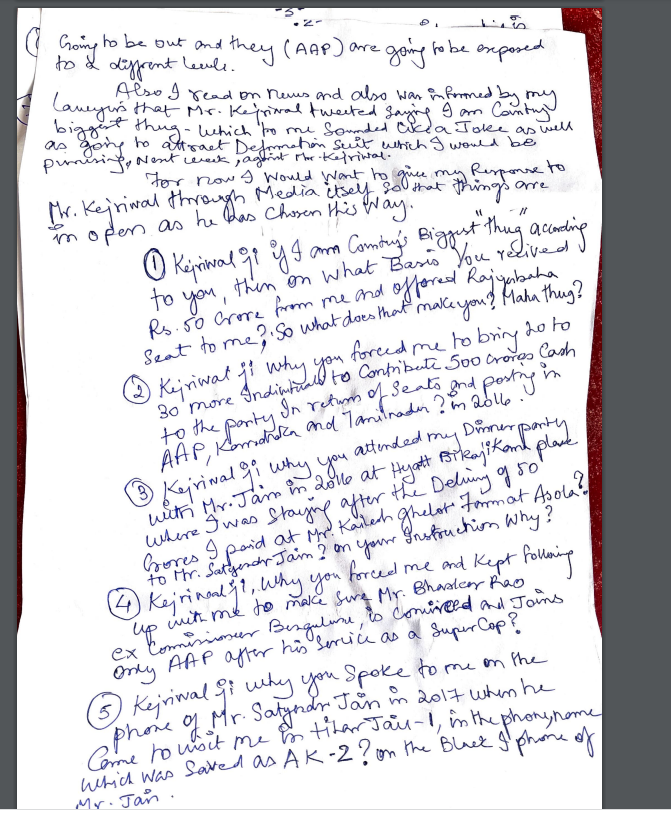 -2-
Going to be out and they (AAP) are going to be exposed
to a diffrent levels.
Also I read on news and also was informed by my
Lawyers that Mr. Kejriwal tweeted saying I am Country
biggest thug - which to me Sounded Like a Joke as well
as going to attract Defamation Suit which I would be
pursuing, Next week, against Mr. Kejriwal.
For now I would want to give my Response to
Mr. Kejriwal through Media itself So that things are
in open as he has Chosen this Way.
① Kejriwal ji if I am Country's Biggest "thug" according
to you, then on what Basis You recived
Rs. 50 Crore from me and offered Rajyasbaha
Seat to me? So what does that make you? Maha thug?
② Kejriwal ji why you forced me to bring 20 to
30 more Individuals to Contribute 500 crores Cash
to the party In return of Seats and posting in
AAP, Karnataka and Tamilnadu? in 2016.
③ Kejriwal ji why you attended my Dinner party
with Mr. Jain in 2016 at Hyatt Bikaji Kama place
where I was Staying after the Delivery of 50
Crores I paid at Mr. Kailash Ghelot Farm at Asola?
to Mr. Satyendr Jain? on your Instruction Why?
④ Kejriwal ji, Why you forced me and Kept following
up with me to make sure Mr. Bhaskar Rao
ex Commissioner Bengaluru, is Convinced and Joins
only AAP after his Service as a Super Cop?
⑤ Kejriwal ji why you Spoke to me on the
phone of Mr. Satyndr Jain in 2017 when he
Came to visit me in tihar Jail-1, in the phone, name
which was Saved as AK-2? on the Black I phone of
Mr. Jain.